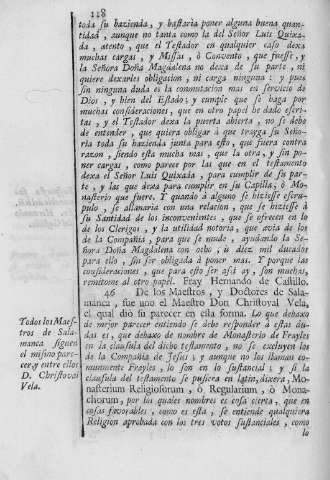 118
toda su hazienda, y bastaria poner alguna buena quan-
tidad, aunque no tanta como la del Señor Luis Quixa-
da, atento, que el Testador en qualquier caso dexa
muchas cargas, y Missas, ò Convento, que fuesse, y
la Señora Doña Magdalena no dexa de su parte, ni
quiere dexarles obligacion, ni carga ninguna: y pues
sin ninguna duda es la conmutacion mas en servicio de
Dios, y bien del Estado; y cumple que se haga por
muchas consideraciones, que en otro papel he dado escri-
tas, y el Testador dexa la puerta abierta, no se debe
de entender, que quiera obligar à que trayga su Seño-
ria toda su hazienda junta para esto, que fuera contra
razon, siendo esta mucha mas, que la otra, y sin po-
ner cargas, como parece por las que en el testamento
dexa el Señor Luis Quixada, para cumplir de su par-
te, y las que dexa para cumplir en su Capilla, ò Mo-
nasterio que fuere. Y quando à alguno se hiziesse escru-
pulo, se allanaria con una relacion, que se hiziesse à
su Santidad de los inconvenientes, que se ofrecen en lo
de los Clerigos, y la utilidad notoria, que avia de los
de la Compañia, para que se mude, ayudando la Se-
ñora Doña Magdalena con ocho, ò diez mil ducados
para ello, sin ser obligada à otros mas. Y porque las
consideraciones, que para esto ser assi ay, son muchas,
remitome al otro papel. Fray Hernando de Castillo.
46 De los Maestros, y Doctores de Sala-
manca, fue uno el Maestro Don Christoval Vela,
el qual diò su parecer en esta forma. Lo que debaxo
de mejor parecer entiendo se debe responder à estas du-
das es, que debaxo de nombre de Monasterio de Frayles
en la clausula del dicho testamento, no se excluyen los
de la Compañia de Jesus; y aunque no los llaman co-
munmente Frayles, lo son en lo sustancial; y si la
clausula del testamento se pusiera en latin, dixera, Mo-
nasterium Religiosorum, ò Regularium, ò Mona-
chorum, por los quales nombres es cosa cierta, que en
cosas favorables, como es esta, se entiende qualquiera
Religion aprobada con los tres votos sustanciales, como
lo
Todos los Maes-
tros de Sala-
manca siguen
el mismo pare-
cer, y entre ellos
D. Christoval
Vela.